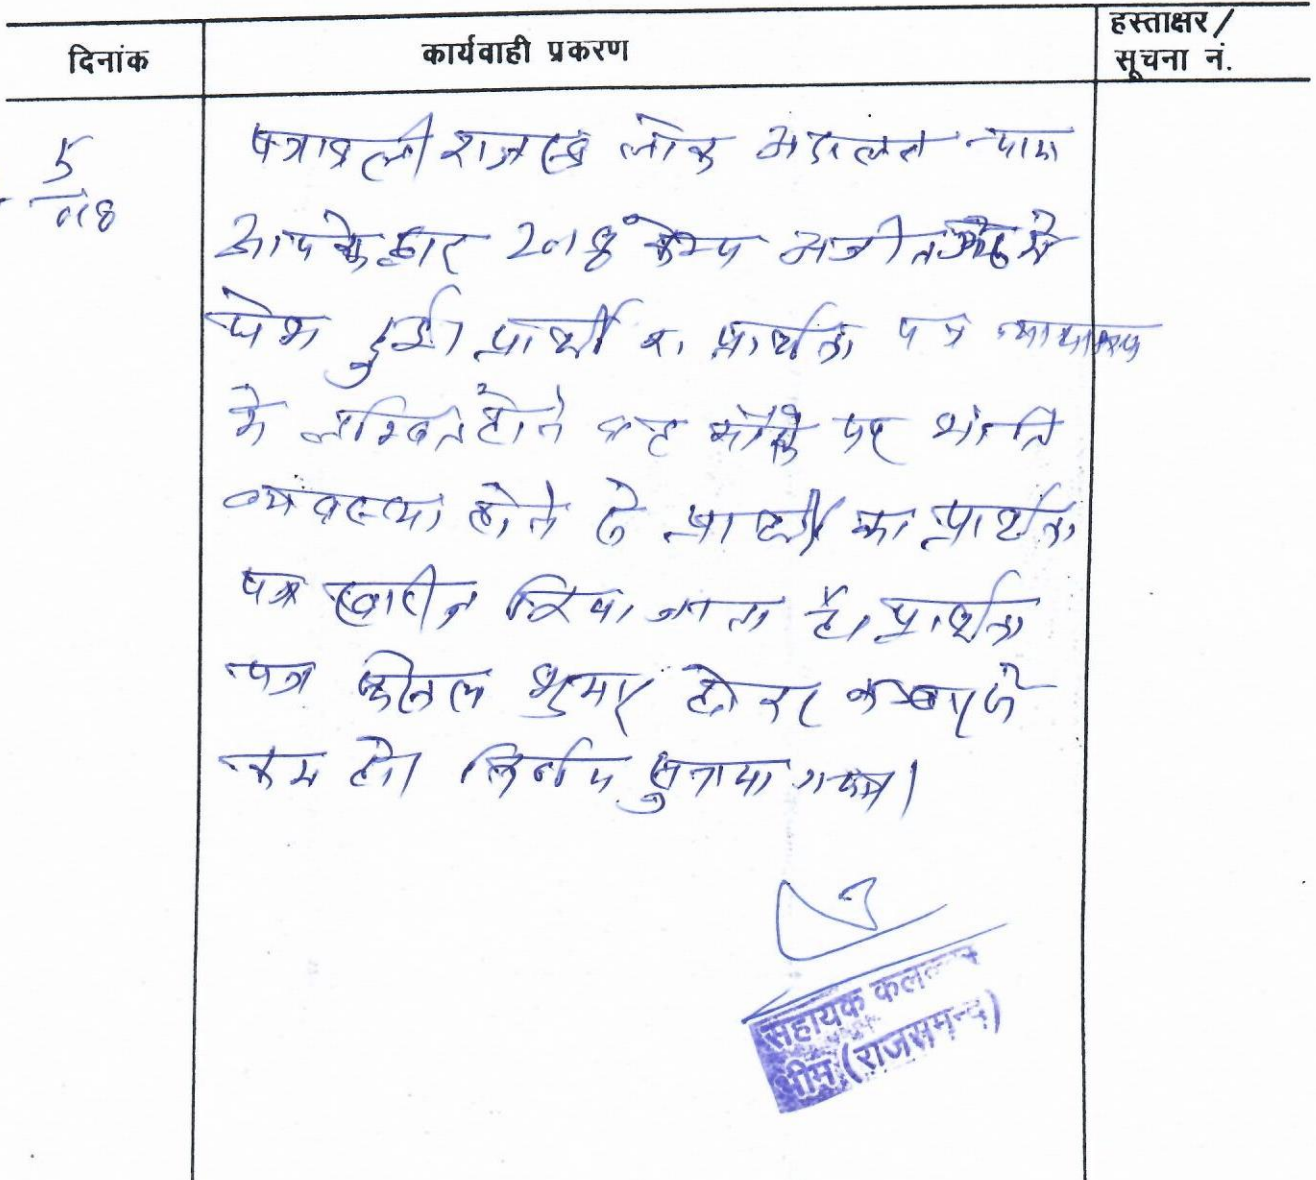 दिनांक
कार्यवाही प्रकरण
हस्ताक्षर/
सूचना नं.
5
पत्रावली राजस्व लोक अदालत न्याय
आपके द्वार 2018 केम्प अजीतगढ़ मे
पेश हुई। प्रार्थी का प्रार्थना पत्र न्यायालय
मे लम्बित होने मौके पर शांति
व्यवस्था होने से प्रार्थी का प्रार्थना
पत्र खारीज किया जाता है। प्रार्थना
पत्र फैसल शुमार होकर नम्बर से
कम हो। निर्णय सुनाया गया।
सहायक कलक्टर
भीम (राजसमन्द)